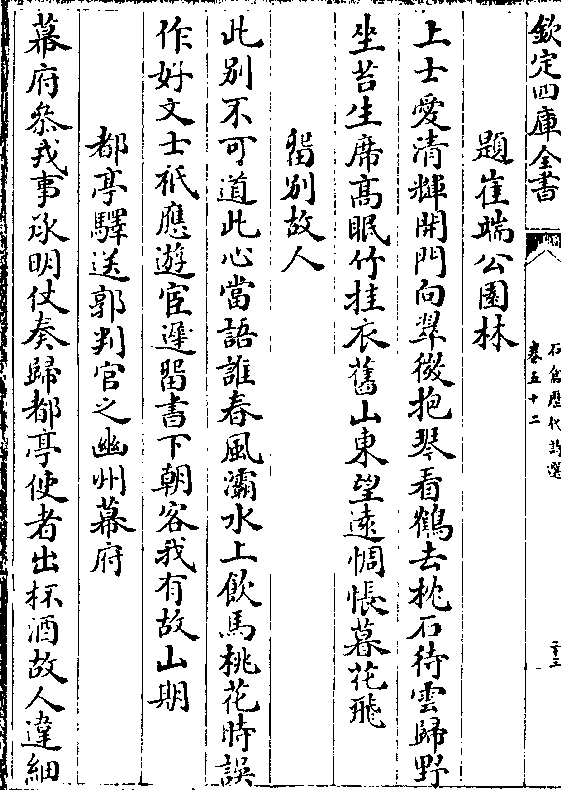 欽定四庫全書
石倉歷代詩選
卷五十二
二十三
題崔端公園林
上士愛清輝開門向翠微抱琴看鶴去枕石待雲歸野
坐苔生席高眠竹挂衣舊山東望遠惆悵暮花飛
留別故人
此別不可道此心當語誰春風灞水上飲馬桃花時誤
作好文士祇應遊宦遲留書下朝客我有故山期
都亭驛送郭判官之幽州幕府
幕府叅戎事承明伏奏歸都亭使者出杯酒故人違細